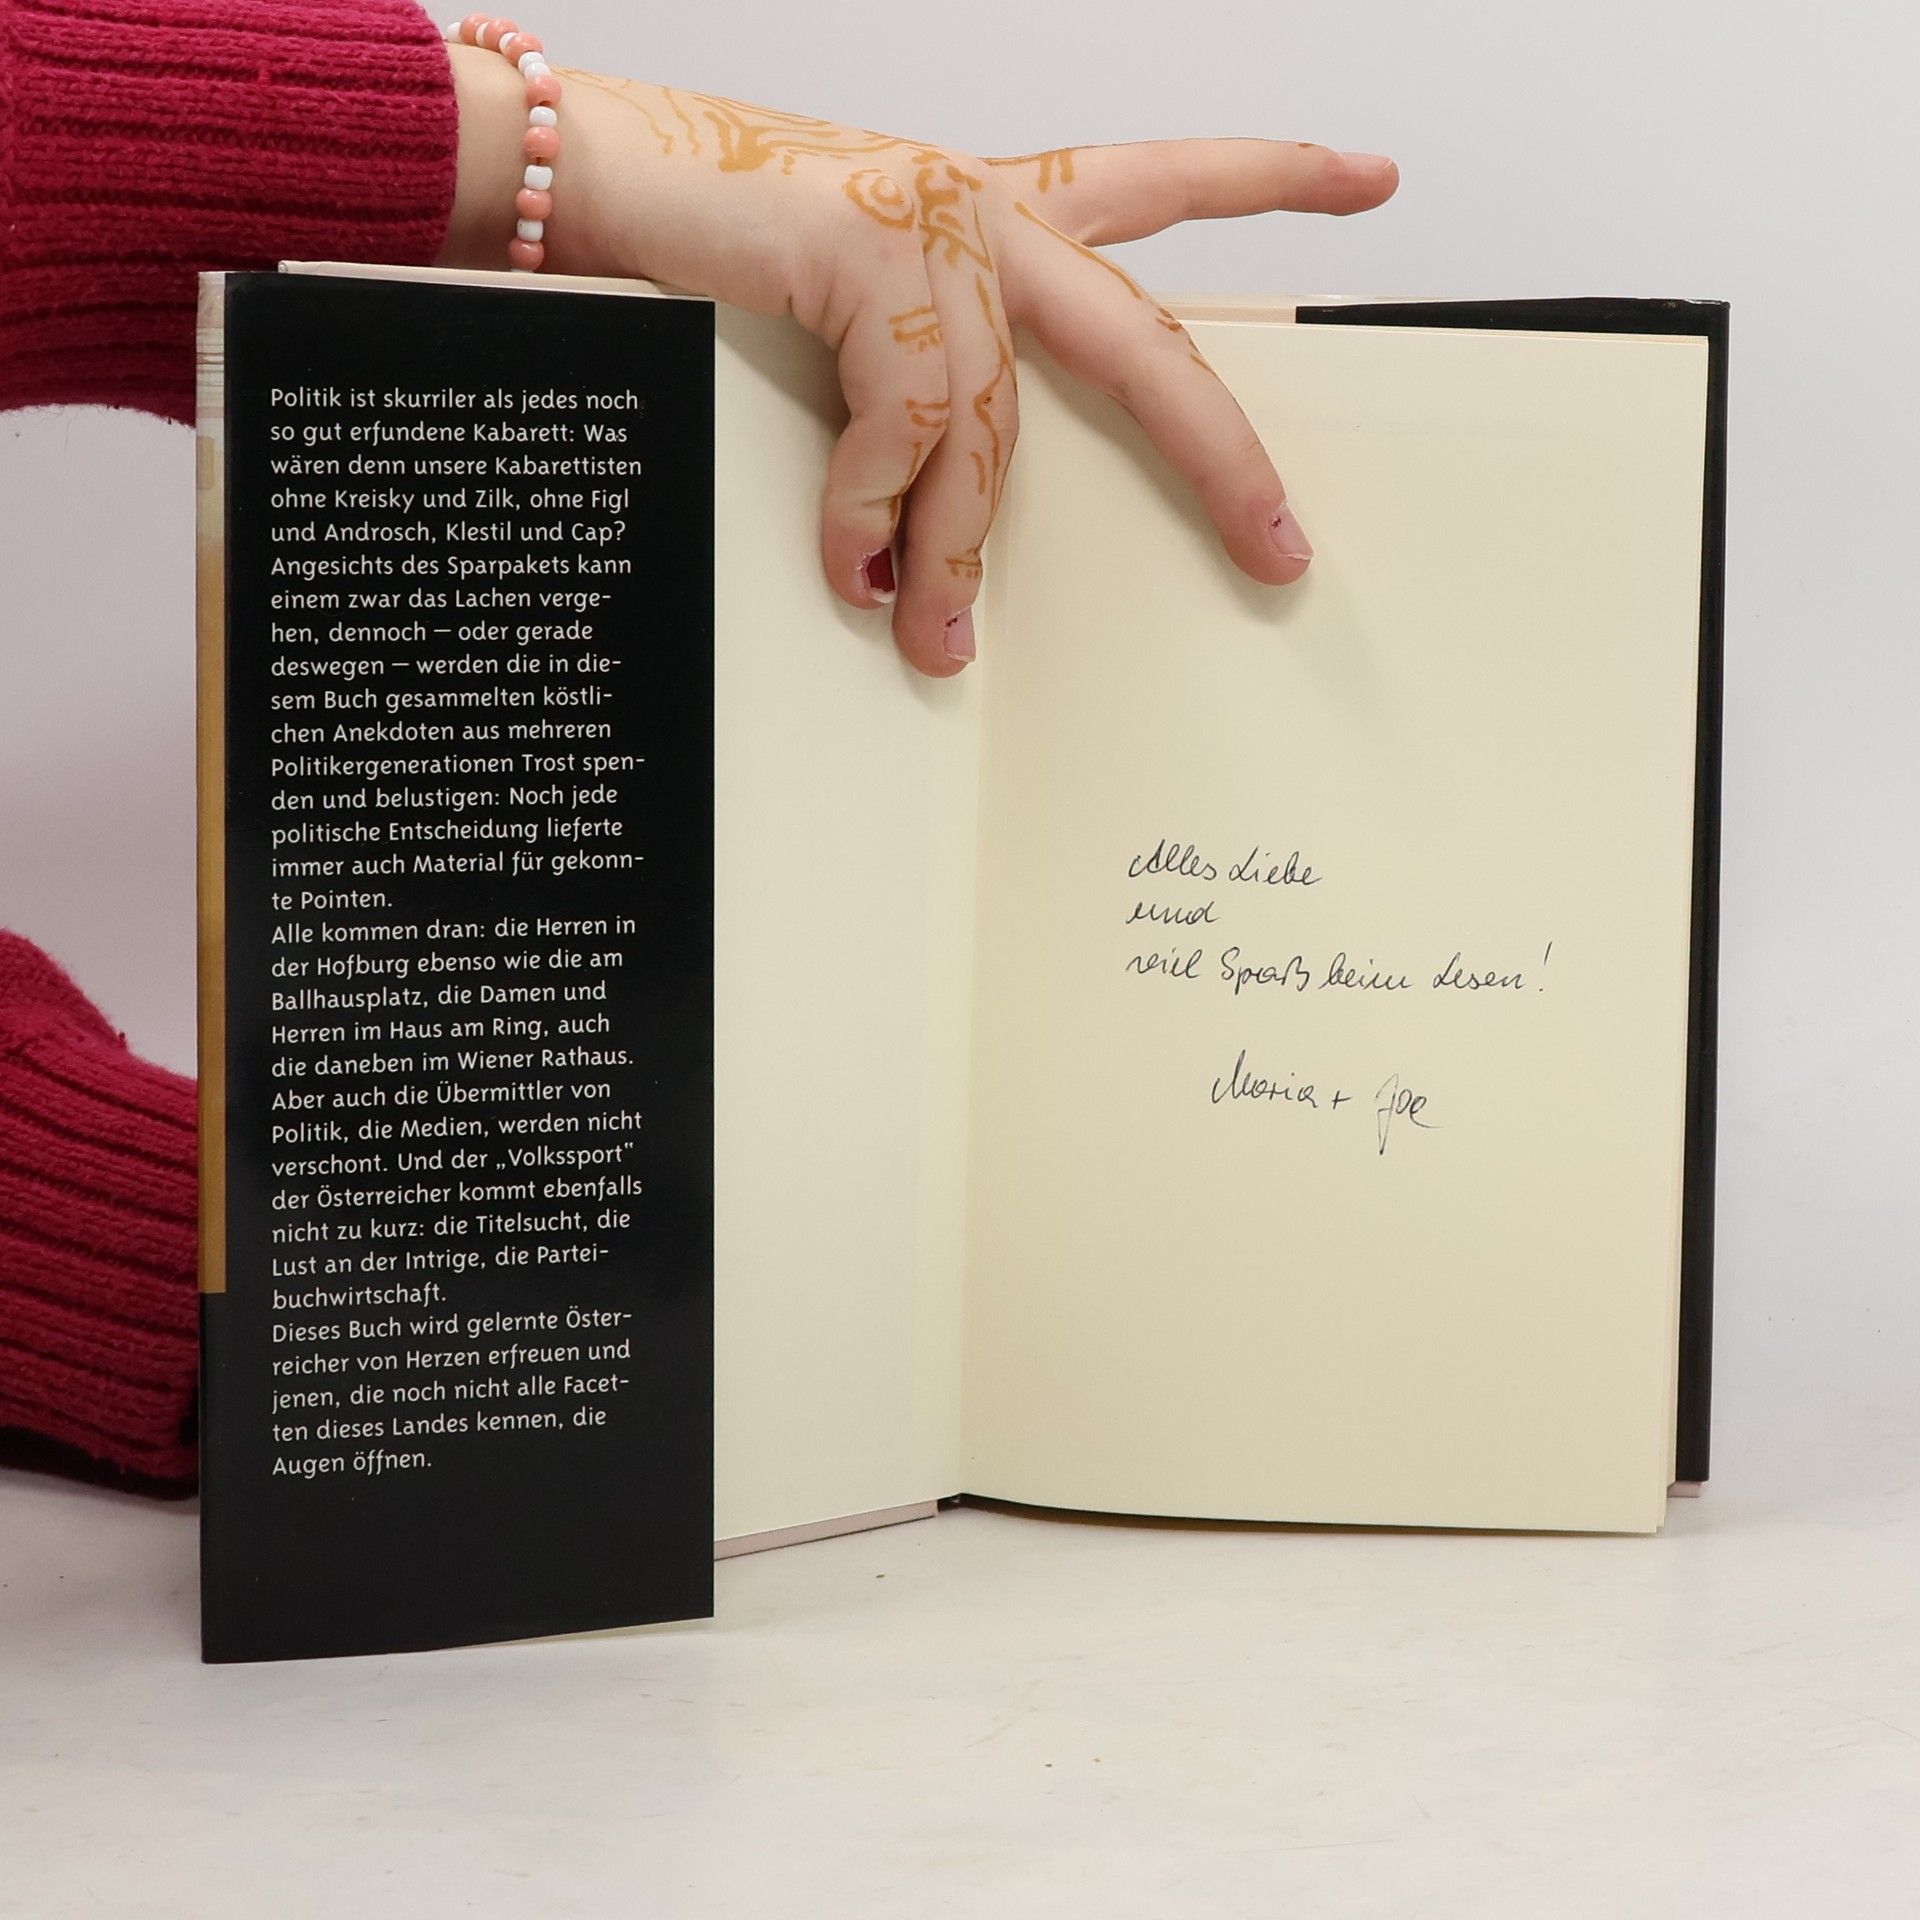 Politik ist skurriler als jedes noch
so gut erfundene Kabarett: Was
wären denn unsere Kabarettisten
ohne Kreisky und Zilk, ohne Figl
und Androsch, Klestil und Cap?
Angesichts des Sparpakets kann
einem zwar das Lachen verge-
hen, dennoch — oder gerade
deswegen — werden die in die-
sem Buch gesammelten köstli-
chen Anekdoten aus mehreren
Politikergenerationen Trost spen-
den und belustigen: Noch jede
politische Entscheidung lieferte
immer auch Material für gekonn-
te Pointen.
Alle kommen dran: die Herren in
der Hofburg ebenso wie die am
Ballhausplatz, die Damen und
Herren im Haus am Ring, auch
die daneben im Wiener Rathaus.
Aber auch die Übermittler von
Politik, die Medien, werden nicht
verschont. Und der „Volkssport“
der Österreicher kommt ebenfalls
nicht zu kurz: die Titelsucht, die
Lust an der Intrige, die Partei-
buchwirtschaft.
Dieses Buch wird gelernte Öster-
reicher von Herzen erfreuen und
jenen, die noch nicht alle Facet-
ten dieses Landes kennen, die
Augen öffnen.
Alles Liebe
und
viel Spaß beim Lesen!
Maria + Joe